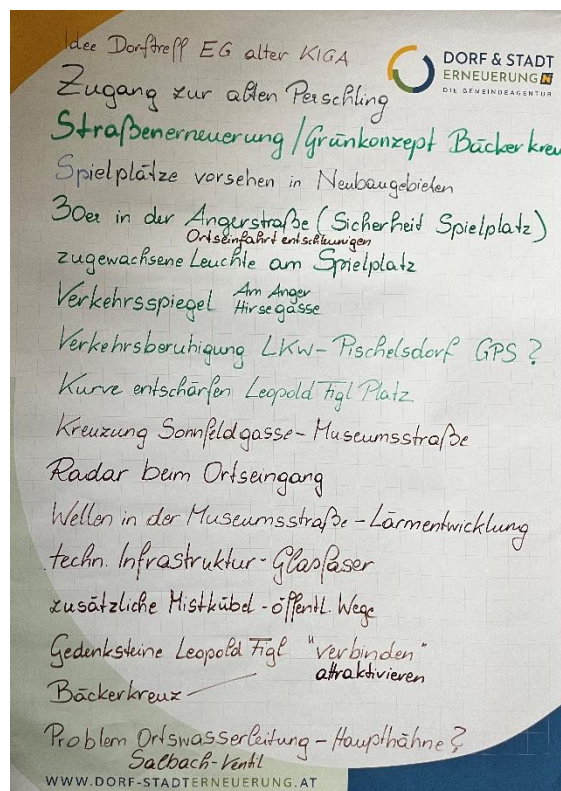 Idee Dorftreff EG alter KIGA
DORF & STADT
ERNEUERUNG N
DIE GEMEINDEAGENTUR
Zugang zur alten Perschling
Straßenerneuerung/Grünkonzept Bäckerkreu
Spielplätze vorsehen in Neubaugebieten
30er in der Angerstraße (Sicherheit Spielplatz)
Ortseinfahrt entschleunigen
zugewachsene Leuchte am Spielplatz
Verkehrsspiegel Am Anger
Hirsegasse
Verkehrsberuhigung LKW - Pischelsdorf GPS ?
Kurve entschärfen Leopold Figl Platz
Kreuzung Sonnfeldgasse - Museumsstraße
Radar beim Ortseingang
Wellen in der Museumsstraße - Lärmentwicklung
techn. Infrastruktur - Glasfaser
zusätzliche Mistkübel - öffentl. Wege
Gedenksteine Leopold Figl "verbinden"
attraktivieren
Bäckerkreuz
Problem Ortswasserleitung - Haupthähne ?
Salbach-Ventil
WWW.DORF-STADTERNEUERUNG.AT